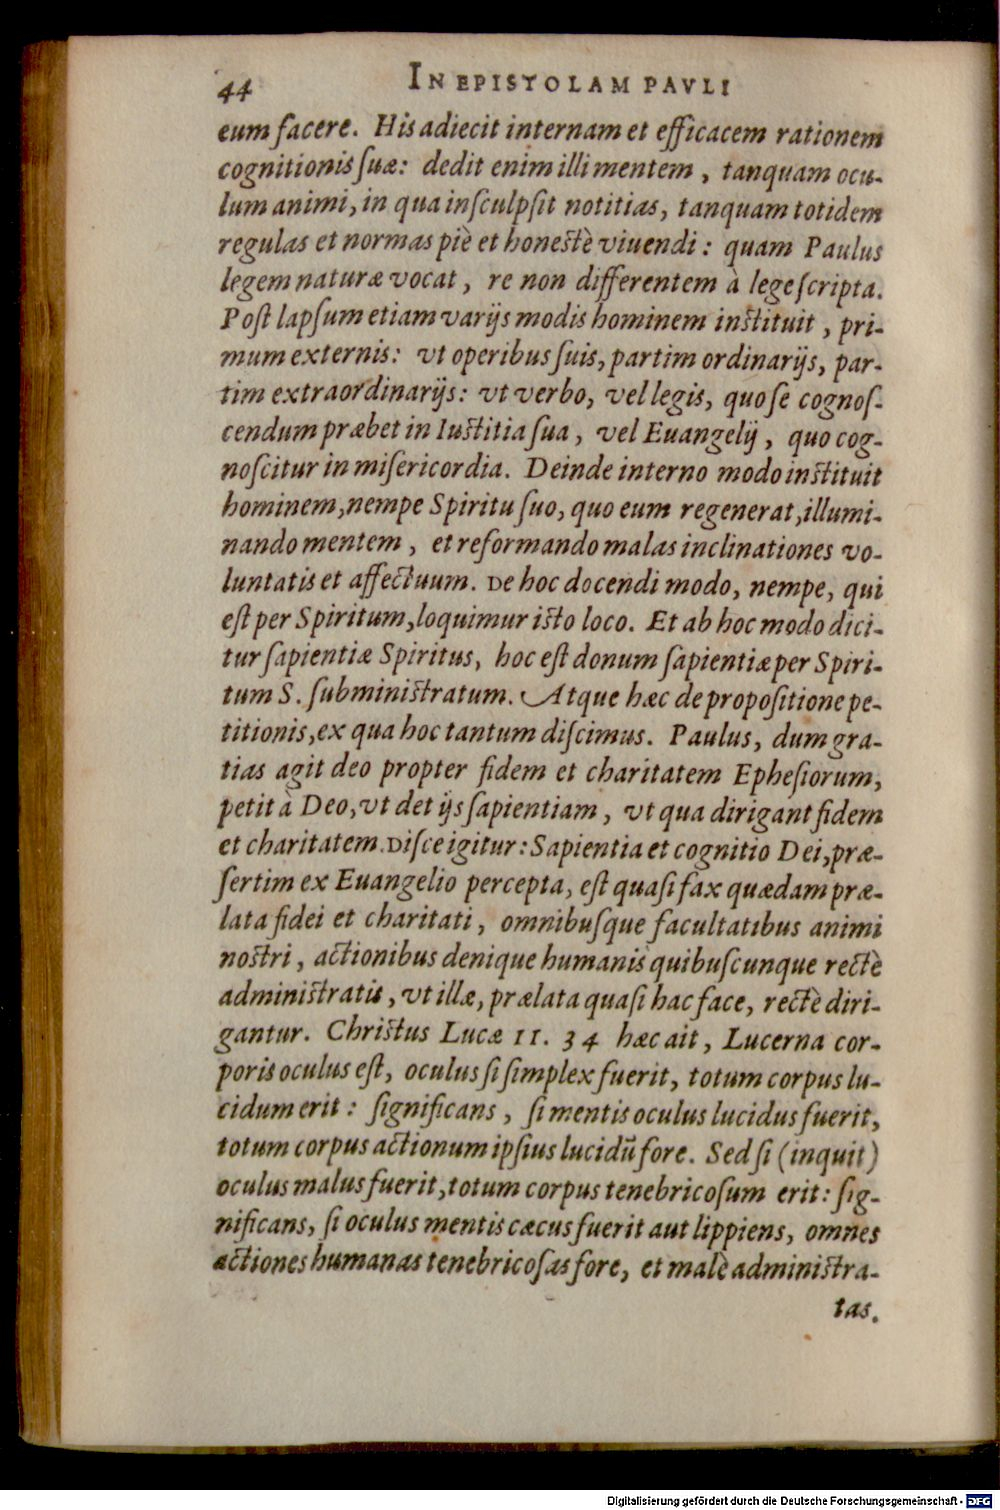 44 IN EPISTOLAM PAVLI
eum facere. His adiecit internam et efficacem rationem
cognitionis ſuæ: dedit enim illi mentem, tanquam ocu-
lum animi, in qua inſculpſit notitias, tanquam totidem
regulas et normas piè et honeſtè viuendi: quam Paulus
legem naturæ vocat, re non differentem à lege ſcripta.
Poſt lapſum etiam varijs modis hominem inſtituit, pri-
mum externis: vt operibus ſuis, partim ordinarijs, par-
tim extraordinarijs: vt verbo, vel legis, quo ſe cognoſ-
cendum præbet in Iuſtitia ſua, vel Euangelij, quo cog-
noſcitur in miſericordia. Deinde interno modo inſtituit
hominem, nempe Spiritu ſuo, quo eum regenerat, illumi-
nando mentem, et reformando malas inclinationes vo-
luntatis et affectuum. De hoc docendi modo, nempe, qui
eſt per Spiritum, loquimur iſto loco. Et ab hoc modo dici-
tur ſapientiæ Spiritus, hoc eſt donum ſapientiæ per Spiri-
tum S. ſubminiſtratum. Atque hæc de propoſitione pe-
titionis, ex qua hoc tantum diſcimus. Paulus, dum gra-
tias agit deo propter fidem et charitatem Epheſiorum,
petit à Deo, vt det ijs ſapientiam, vt qua dirigant fidem
et charitatem. Diſce igitur: Sapientia et cognitio Dei, præ-
ſertim ex Euangelio percepta, eſt quaſi fax quædam præ-
lata fidei et charitati, omnibuſque facultatibus animi
noſtri, actionibus denique humanis quibuſcunque rectè
adminiſtratis, vt illæ, prælata quaſi hac face, rectè diri-
gantur. Chriſtus Lucæ 11. 34 hæc ait, Lucerna cor-
poris oculus eſt, oculus ſi ſimplex fuerit, totum corpus lu-
cidum erit: ſignificans, ſi mentis oculus lucidus fuerit,
totum corpus actionum ipſius lucidũ fore. Sed ſi (inquit)
oculus malus fuerit, totum corpus tenebricoſum erit: ſig-
nificans, ſi oculus mentis cæcus fuerit aut lippiens, omnes
actiones humanas tenebricoſas fore, et malè adminiſtra-
tas.
Digitalisierung gefördert durch die Deutsche Forschungsgemeinschaft - DFG